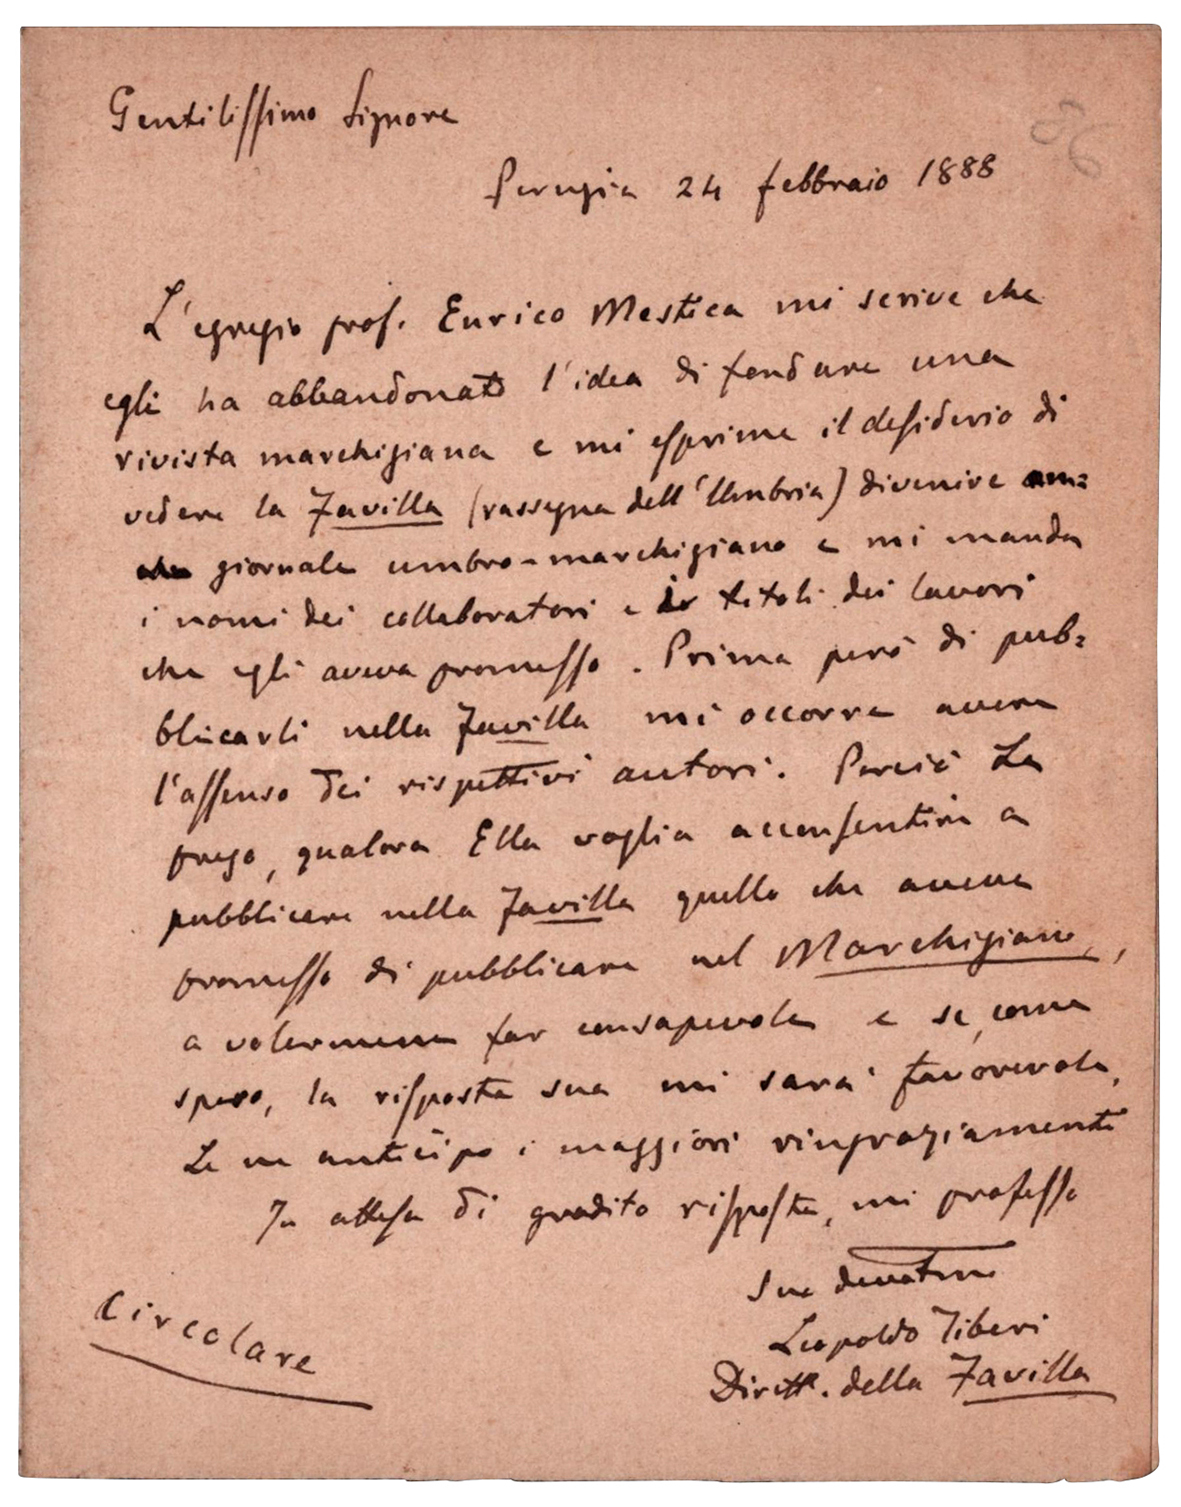 Gentilissimo Signore
86
Perugia 24 febbraio 1888
L'egregio prof. Enrico Mestica mi scrive che
egli ha abbandonato l'idea di fondare una
rivista marchigiana e mi esprime il desiderio di
vedere la Favilla (rassegna dell'Umbria) divenire
giornale umbro-marchigiano e mi manda
i nomi dei collaboratori e i titoli dei lavori
che egli aveva promesso. Prima però di pub=
blicarli nella Favilla mi occorre avere
l'assenso dei rispettivi autori. Perciò La
prego, qualora Ella voglia acconsentire a
pubblicare nella Favilla quello che aveva
promesso di pubblicare nel Marchigiano,
a volermene far consapevole e se, come
spero, la risposta sua mi sarà favorevole,
Le ne anticipo i maggiori ringraziamenti
In attesa di gradita risposta, mi professo
Suo devotmo
Leopoldo Tiberi
Dirett. della Favilla
Circolare